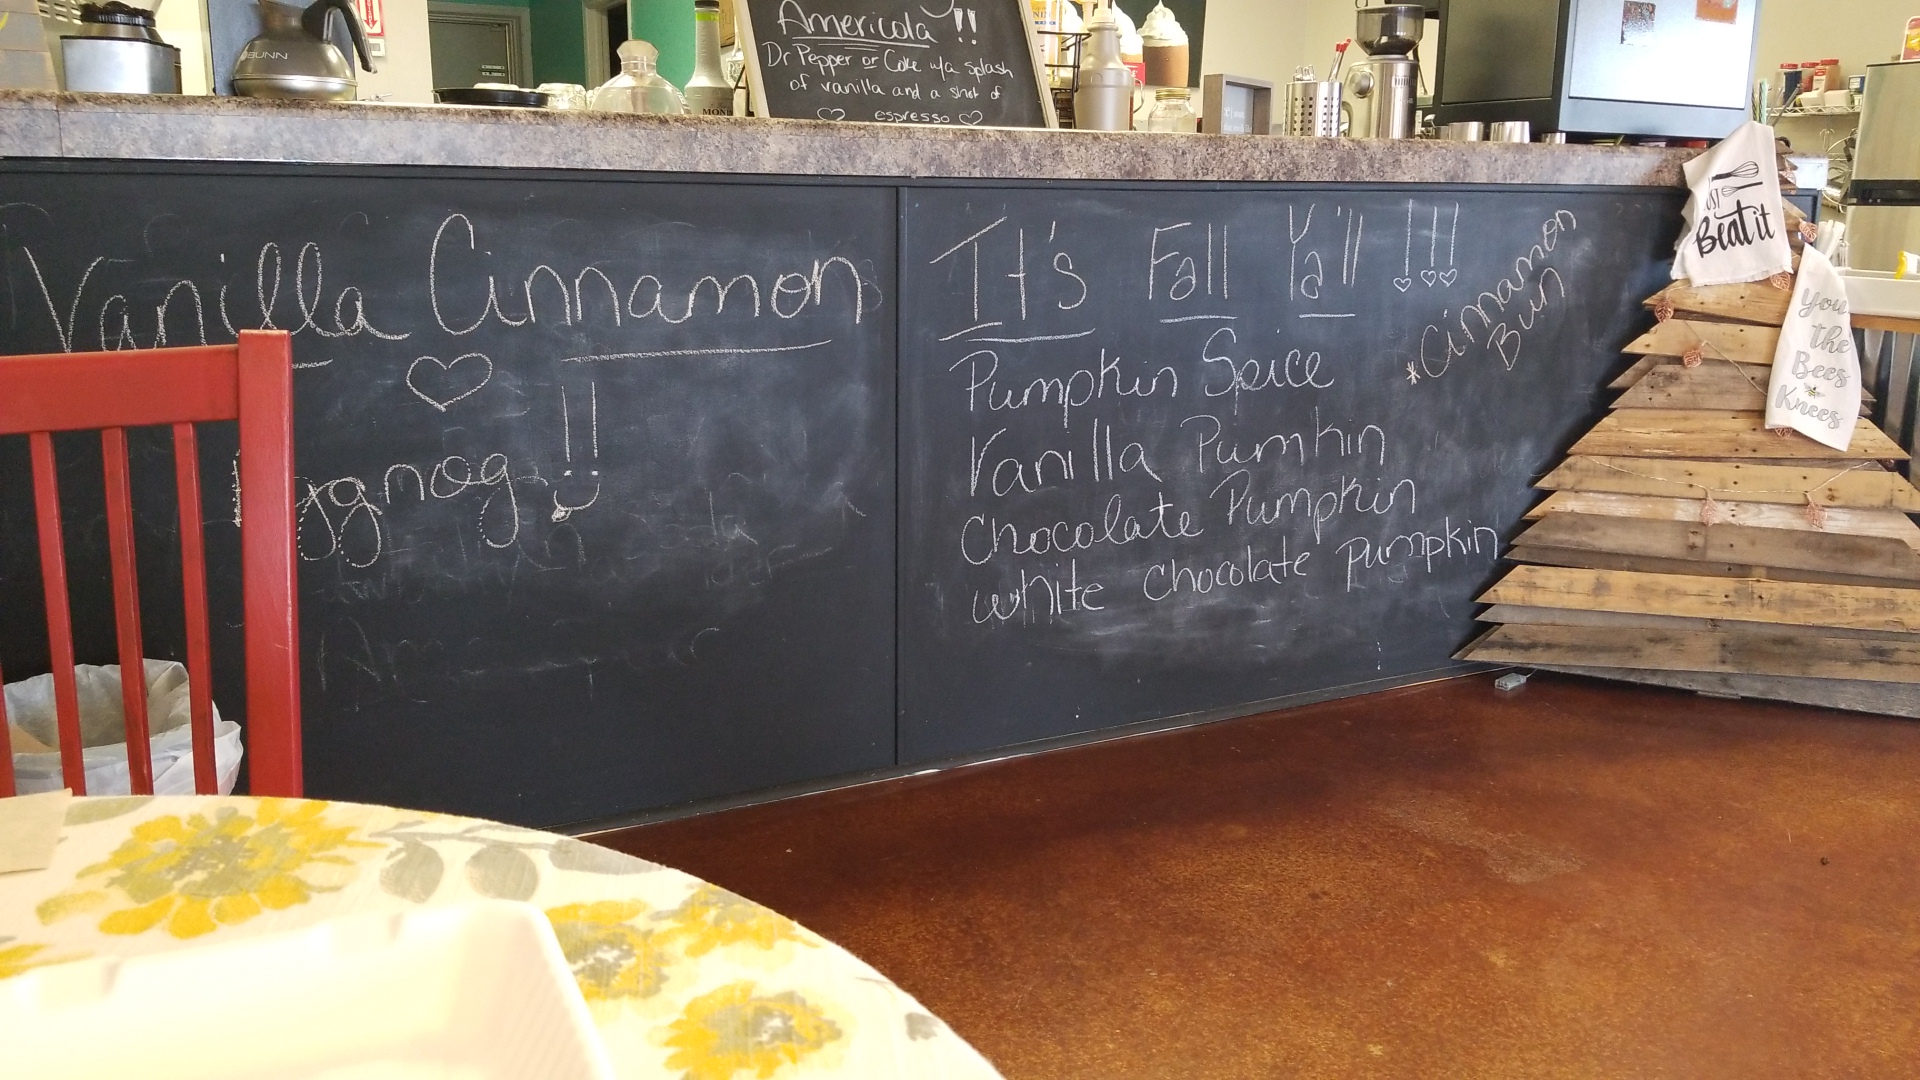 BUNN
Americola !!
Dr Pepper or Coke w/a splash
of vanilla and a shot of
espresso
MON
Vanilla Cinnamon
Eggnog !!
It's Fall Ya'll !!!
Pumpkin Spice
Vanilla Pumkin
Chocolate Pumpkin
White Chocolate Pumpkin
*Cinnamon
Bun
Just
Beat it
you
the
Bees
Knees